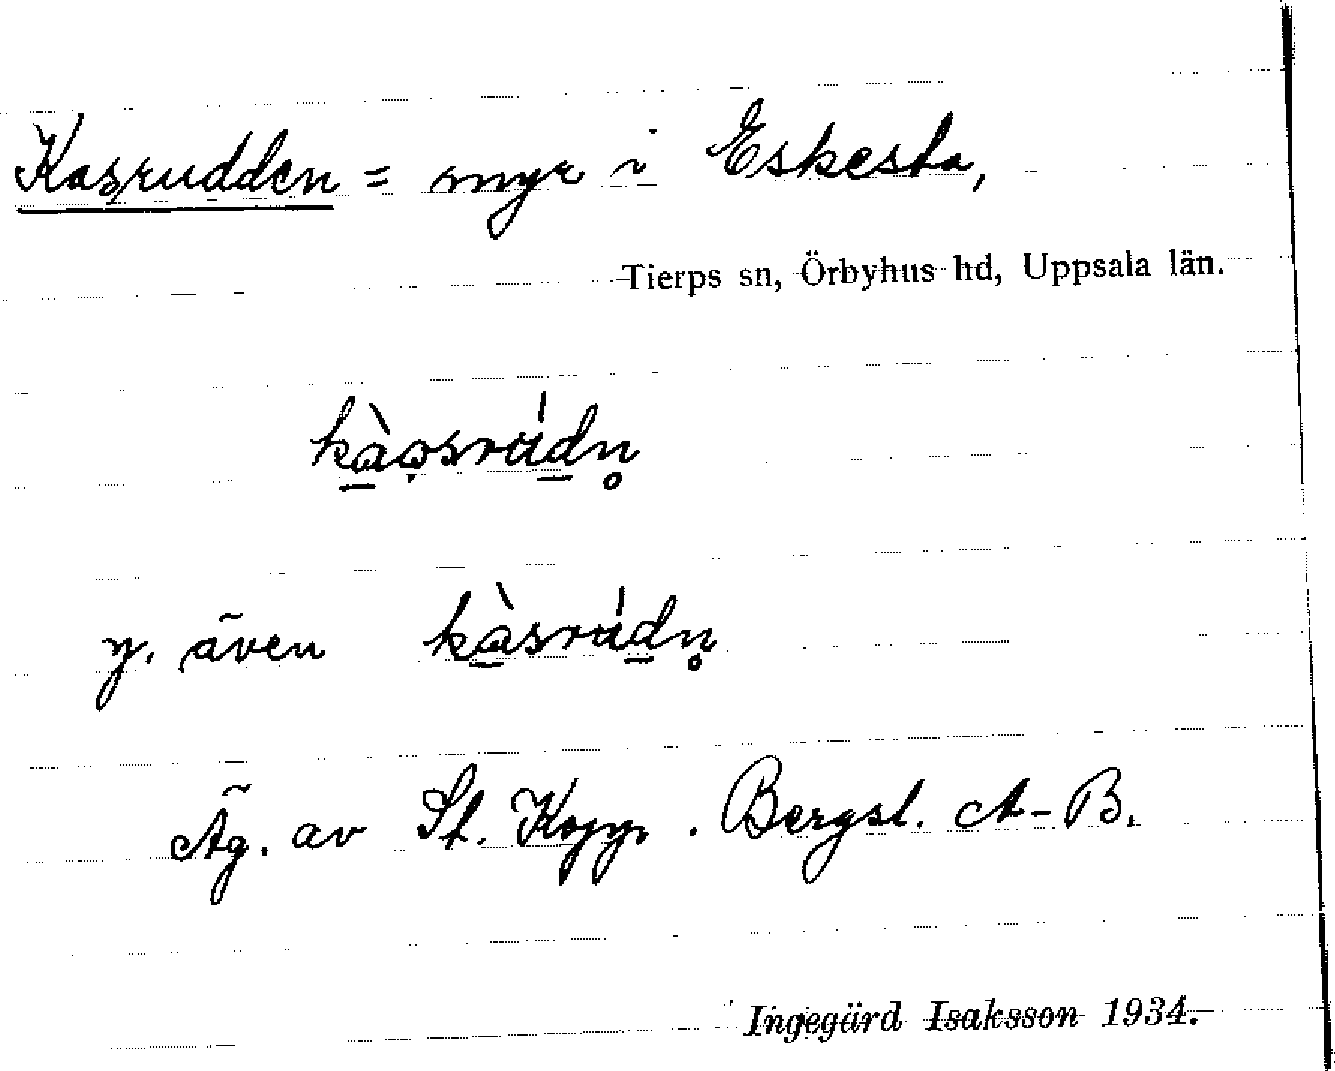 Kasrudden = myr i Eskesta,
Tierps sn, Örbyhus hd, Uppsala län.
y. även
Äg. av St. Kopp. Bergsl. A-B.
Ingegärd Isaksson 1934.